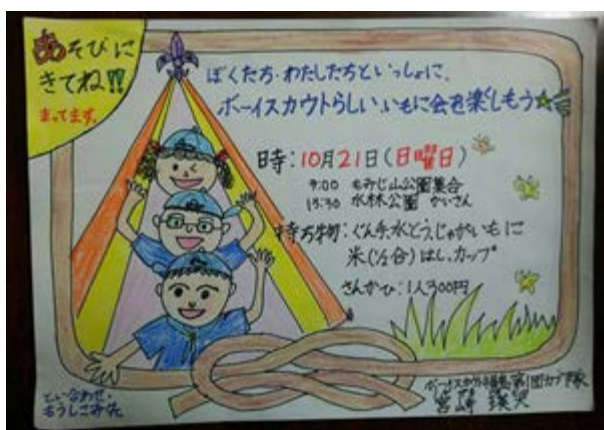 あそびに
きてね!!
まってます。
ぼくたち・わたしたちといっしょに、
ボーイスカウトらしい、いもに会を楽しもう☆
日時:10月21日(日曜日)
9:00 もみじ山公園集合
13:30 水林公園 かいさん
持ち物:ぐん手、水とう、じゃがいも1こ
米(1/2合)はし、カップ
さんかひ:1人300円
といあわせ・
もうしこみ先
ボーイスカウト福島第1団カブ隊
宮崎